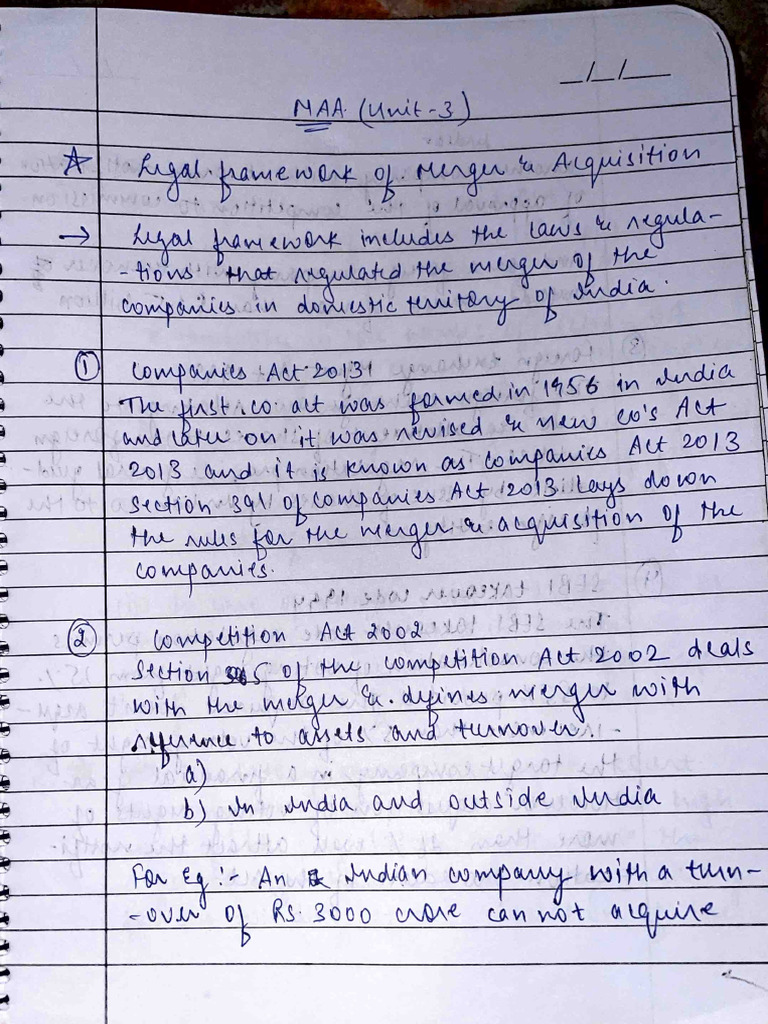 _/_/__
MAA (Unit-3)
☆ Legal framework of Merger & Acquisition
→ Legal framework includes the laws & regula-
-tions that regulated the merger of the
companies in domestic territory of India.
① Companies Act 2013!
The first co act was formed in 1956 in India
and later on it was revised & new co's Act
2013 and it is known as companies Act 2013
Section 391 of Companies Act 2013 lays down
the rules for the merger & acquisition of the
companies.
② Competition Act 2002
Section 5 of the competition Act 2002 deals
with the merger & defines merger with
reference to assets and turnover.
a)
b) In India and outside India
For Eg :- An Indian company with a turn-
-over of Rs. 3000 crore can not acquire